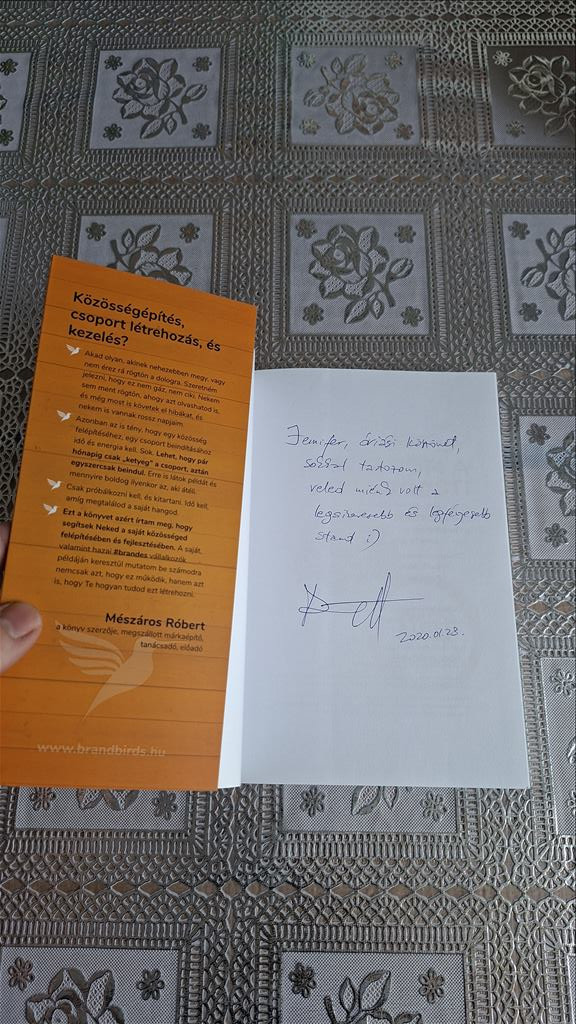 Közösségépítés,
csoport létrehozás, és
kezelés?
Akad olyan, akinek nehezebben megy, vagy
nem érez rá rögtön a dologra. Szeretném
jelezni, hogy ez nem gáz, nem ciki. Nekem
sem ment rögtön, ahogy azt olvashatod is,
és még most is követek el hibákat, és
nekem is vannak rossz napjaim.
Azonban az is tény, hogy egy közösség
felépítéséhez, egy csoport beindításához
idő és energia kell. Sok. Lehet, hogy pár
hónapig csak „ketyeg” a csoport, aztán
egyszercsak beindul. Erre is látok példát és
mennyire boldog ilyenkor az, aki átéli.
Csak próbálkozni kell, és kitartani. Idő kell,
amíg megtalálod a saját hangod.
Ezt a könyvet azért írtam meg, hogy
segítsek Neked a saját közösséged
felépítésében és fejlesztésében. A saját,
valamint hazai #brandes vállalkozók
példáján keresztül mutatom be számodra
nemcsak azt, hogy ez működik, hanem azt
is, hogy Te hogyan tudod ezt létrehozni.
Mészáros Róbert
a könyv szerzője, megszállott márkaépítő,
tanácsadó, előadó
www.brandbirds.hu
Jennifer, óriási köszönet,
sokkal tartozom,
veled miénk volt a
legsikeresebb és legfigyesebb
stand :)
2020.01.23.